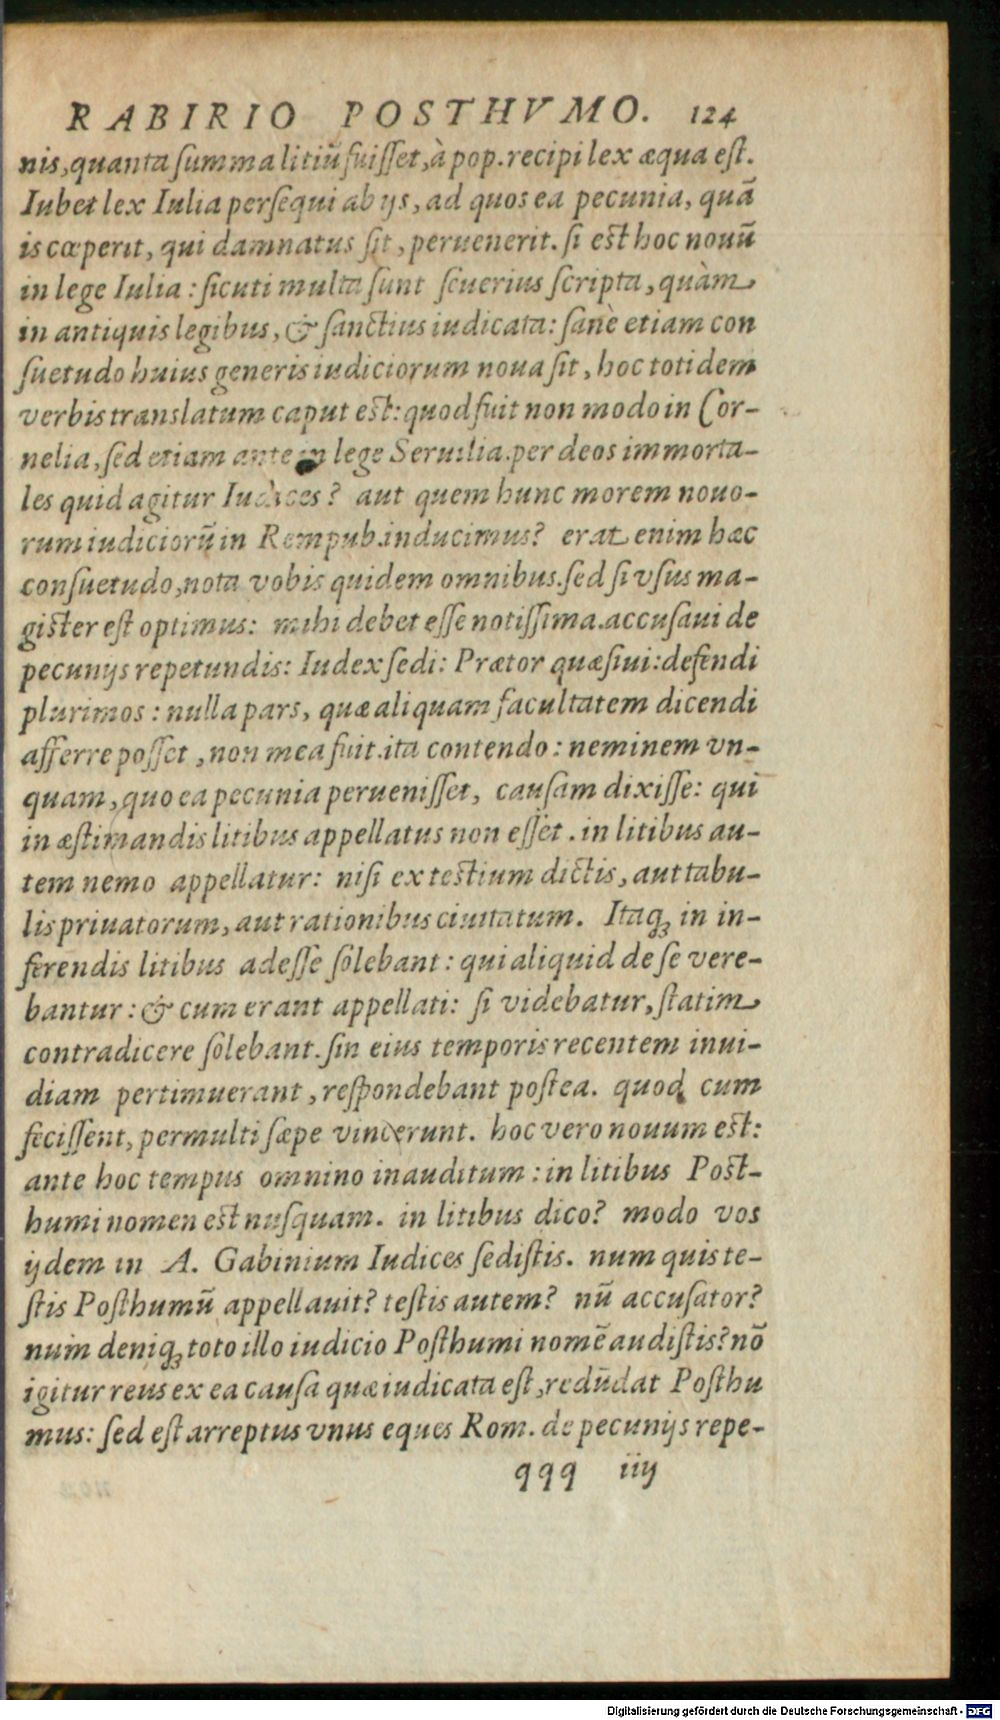 RABIRIO POSTHVMO. 124
nis, quanta summa litiũ fuisset, à pop. recipi lex æqua est.
Iubet lex Iulia persequi ab ijs, ad quos ea pecunia, quã
is cœperit, qui damnatus sit, peruenerit. si est hoc nouũ
in lege Iulia: sicuti multa sunt seuerius scripta, quàm
in antiquis legibus, & sanctius iudicata: sanè etiam con
suetudo huius generis iudiciorum noua sit, hoc totidem
verbis translatum caput est: quod fuit non modo in Cor-
nelia, sed etiam ante in lege Seruilia. per deos immorta-
les quid agitur Iudices? aut quem hunc morem nouo-
rum iudiciorũ in Rempub. inducimus? erat enim hæc
consuetudo, nota vobis quidem omnibus. sed si vsus ma-
gister est optimus: mihi debet esse notissima. accusaui de
pecunijs repetundis: Iudex sedi: Prætor quæsiui: defendi
plurimos: nulla pars, quæ aliquam facultatem dicendi
afferre posset, non mea fuit. ita contendo: neminem vn-
quam, quo ea pecunia peruenisset, causam dixisse: qui
in æstimandis litibus appellatus non esset. in litibus au-
tem nemo appellatur: nisi ex testium dictis, aut tabu-
lis priuatorum, aut rationibus ciuitatum. Itaq; in in-
ferendis litibus adesse solebant: qui aliquid de se vere-
bantur: & cum erant appellati: si videbatur, statim
contradicere solebant. sin eius temporis recentem inui-
diam pertimuerant, respondebant postea. quod cum
fecissent, permulti sæpe vincerunt. hoc vero nouum est:
ante hoc tempus omnino inauditum: in litibus Post-
humi nomen est nusquam. in litibus dico? modo vos
ijdem in A. Gabinium Iudices sedistis. num quis te-
stis Posthumũ appellauit? testis autem? nũ accusator?
num deniq; toto illo iudicio Posthumi nomẽ audistis? nõ
igitur reus ex ea causa quæ iudicata est, redũdat Posthu
mus: sed est arreptus vnus eques Rom. de pecunijs repe-
qqq iiij
Digitalisierung gefördert durch die Deutsche Forschungsgemeinschaft - DFG